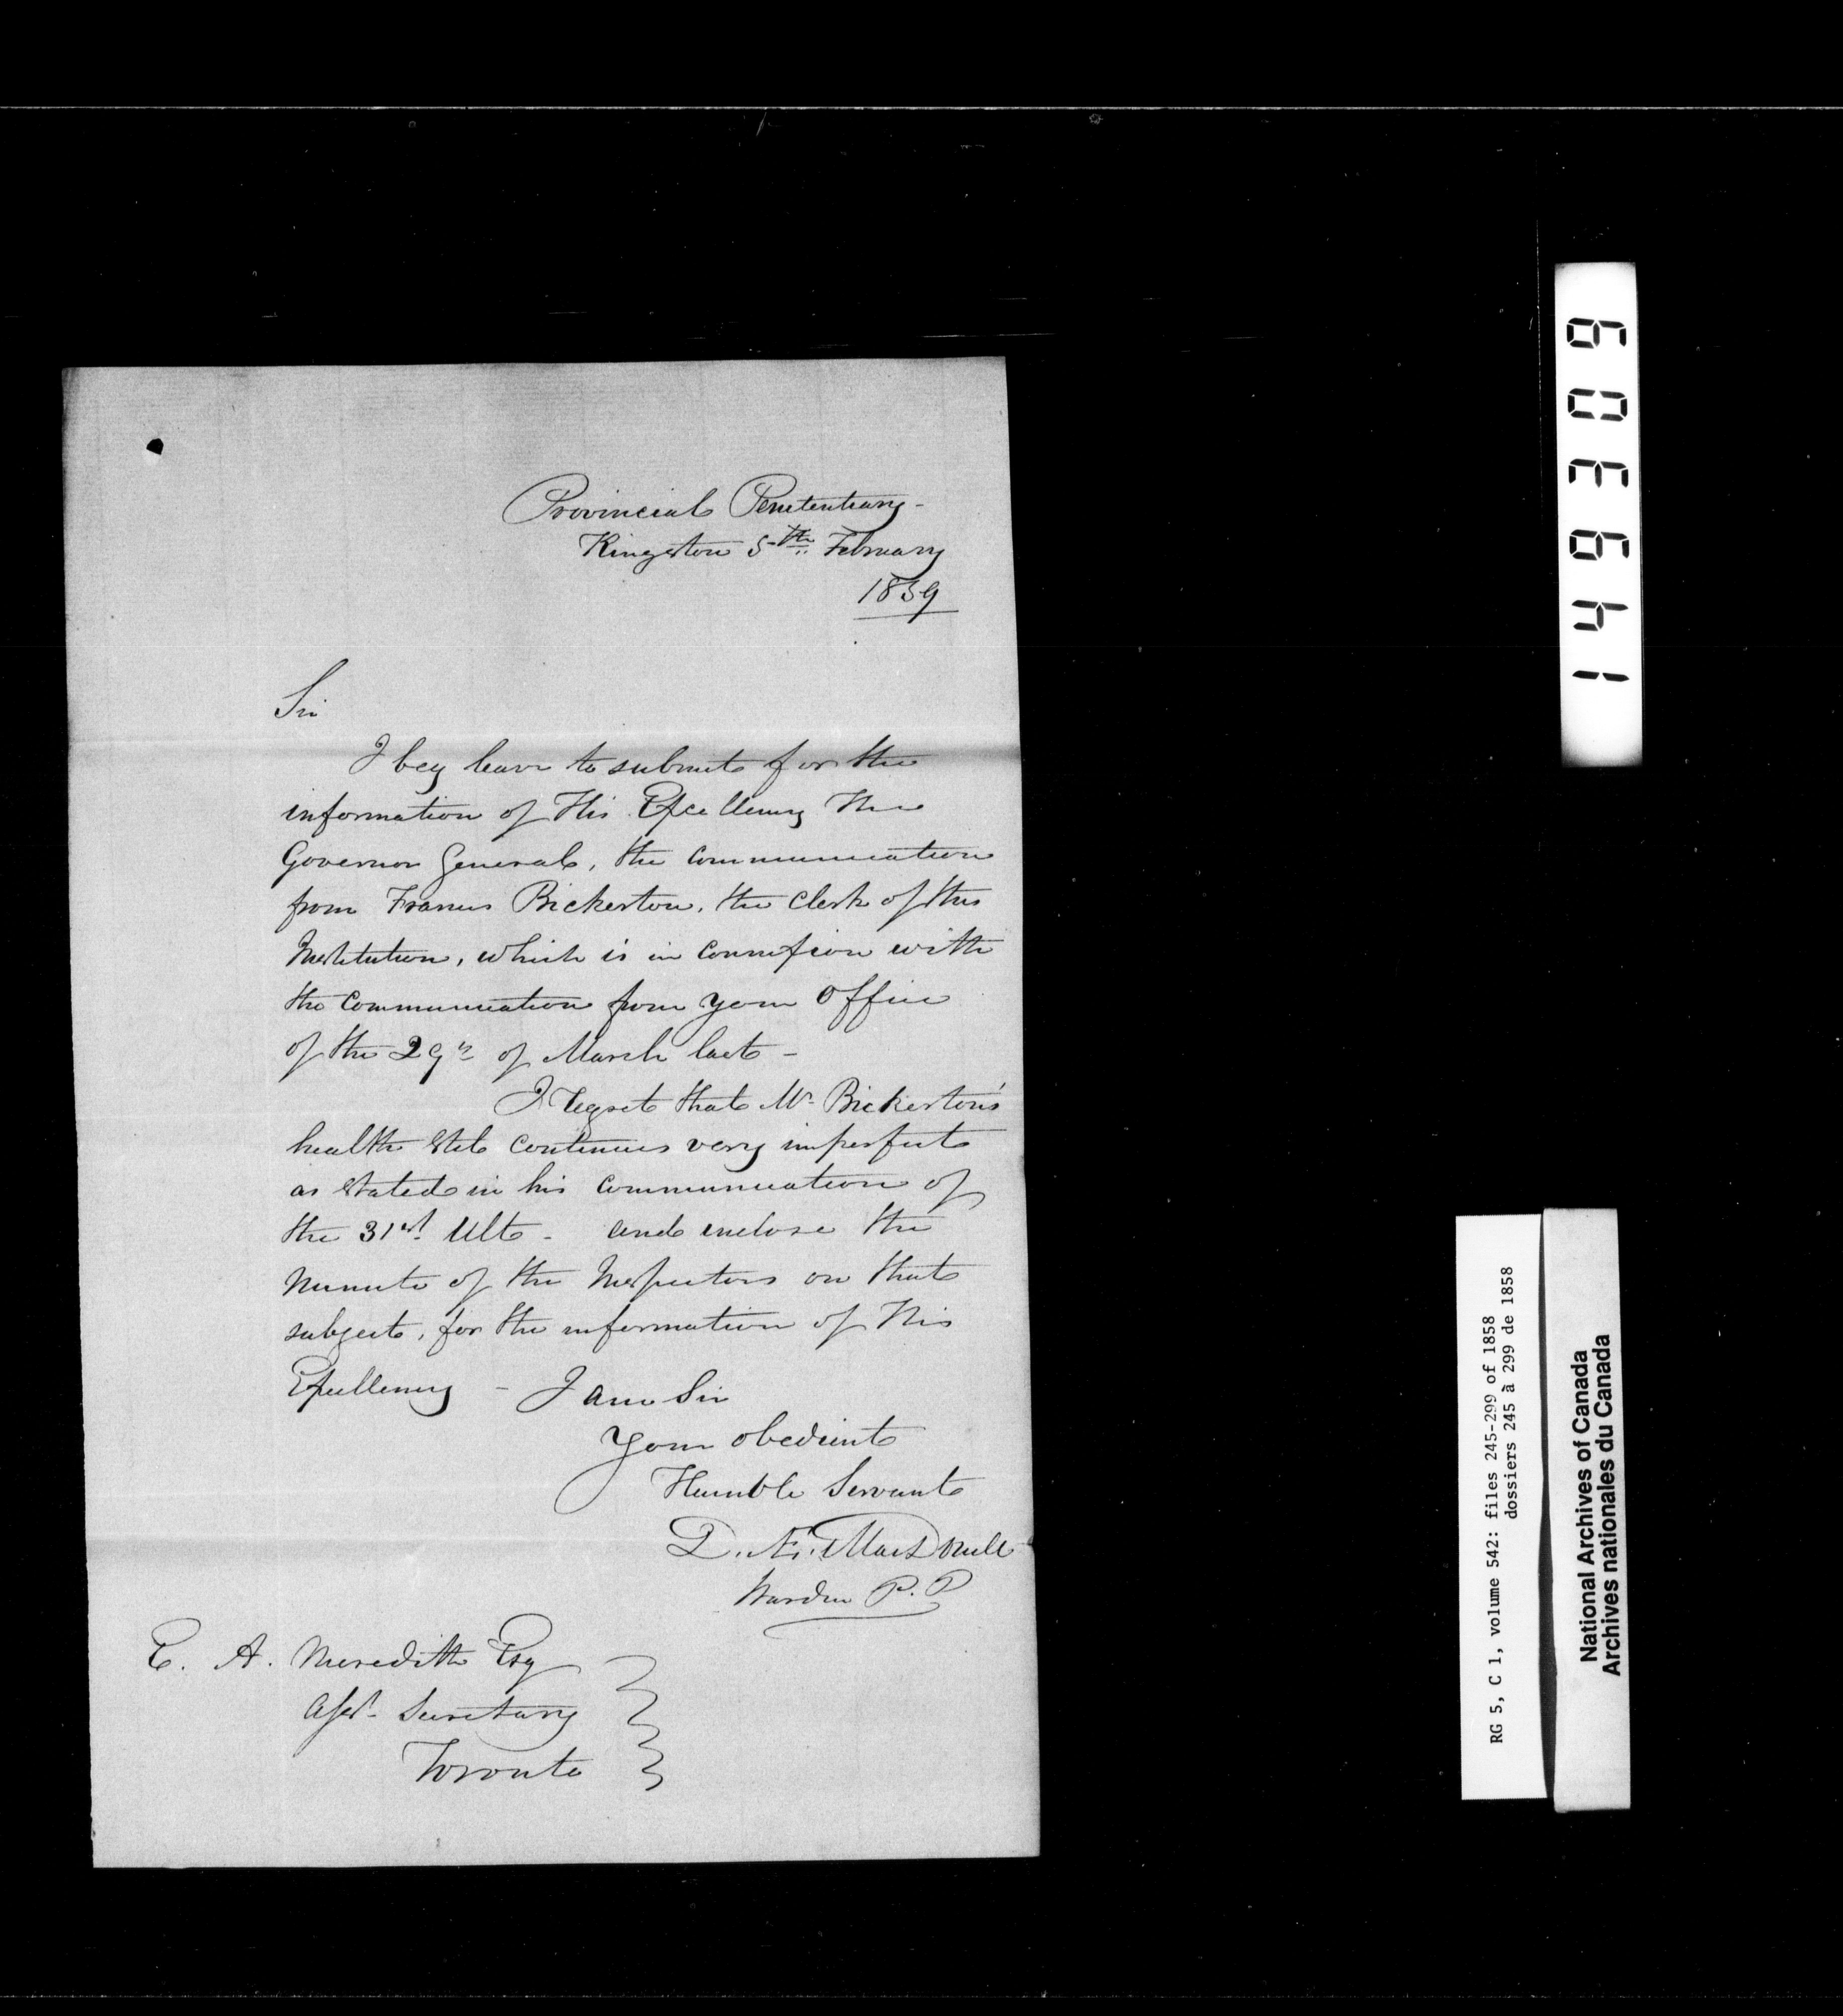 Provincial Penetentiary -
Kingston 5th February
1859
Sir
I beg leave to submit for the
information of His Excellency The
Governor General, the Communication
from Francis Bickerton, the Clerk of this
Institution, which is in Connexion with
the Communication from your Office
of the 29th of March last -
I regret that Mr Bickerton's
health still continues very imperfect
as stated in his Communication of
the 31st Ulto - and enclose the
Minute of the Inspectors on that
subject, for the information of His
Excellency - I am Sir
Your obedient
Humble Servant
D. Æ. MacDonell
Warden P. P
E. A. Meredith Esq
Asst. Secretary
Toronto
149309
RG 5, C 1, volume 542: files 245-299 of 1858
dossiers 245 à 299 de 1858
National Archives of Canada
Archives nationales du Canada